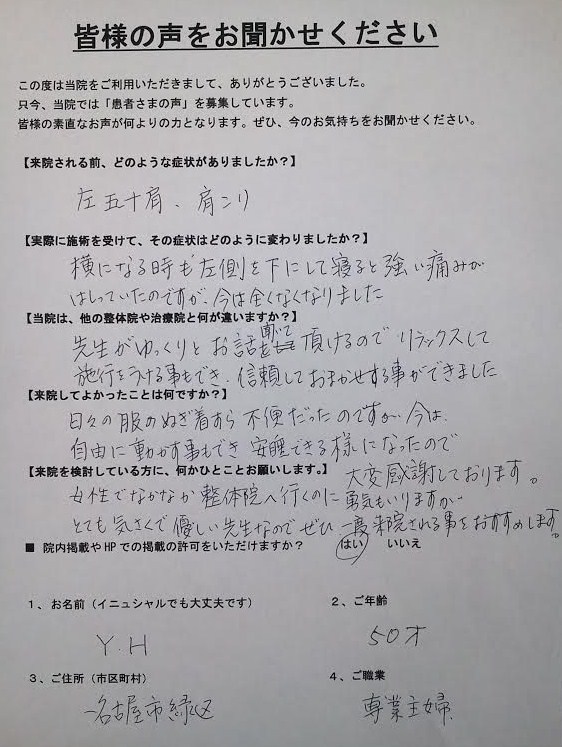 皆様の声をお聞かせください
この度は当院をご利用いただきまして、ありがとうございました。
只今、当院では「患者さまの声」を募集しています。
皆様の素直なお声が何よりの力となります。ぜひ、今のお気持ちをお聞かせください。
【来院される前、どのような症状がありましたか？】
左五十肩、肩こり
【実際に施術を受けて、その症状はどのように変わりましたか？】
横になる時も左側を下にして寝ると強い痛みが
はしっていたのですが、今は全くなくなりました
【当院は、他の整体院や治療院と何が違いますか？】
先生がゆっくりとお話聞いて頂けるのでリラックスして
施行をうける事もでき、信頼しておまかせする事ができました
【来院してよかったことは何ですか？】
日々の服のぬぎ着すら不便だったのですが、今は、
自由に動かす事もでき安眠できる様になったので
大変感謝しております。
【来院を検討している方に、何かひとことお願いします。】
女性でなかなか整体院へ行くのに勇気もいりますが
とても気さくで優しい先生なのでぜひ一度来院される事をおすすめします。
■ 院内掲載やHPでの掲載の許可をいただけますか？ はい いいえ
1、お名前（イニュシャルでも大丈夫です）
2、ご年齢
Y.H
50才
3、ご住所（市区町村）
4、ご職業
名古屋市緑区
専業主婦